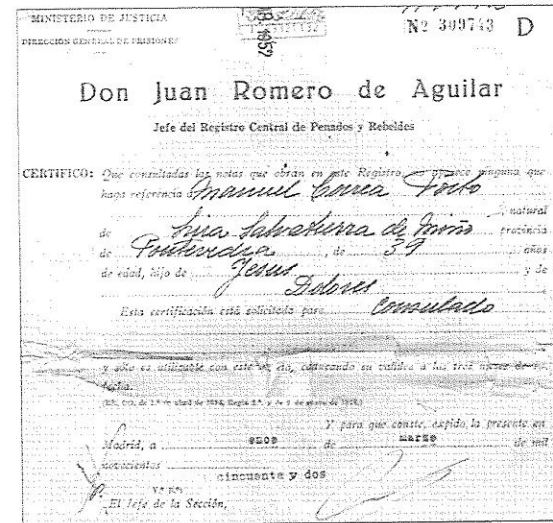 MINISTERIO DE JUSTICIA
DIRECCIÓN GENERAL DE PRISIONES
1952
Nº 309743 D
Don Juan Romero de Aguilar
Jefe del Registro Central de Penados y Rebeldes
CERTIFICO: Que consultadas las notas que obran en este Registro, no aparece ninguna que
haga referencia a Manuel Correa
, natural
de Salvatierra de Miño provincia
de Pontevedra, de 39 años
de edad, hijo de Jesus y de
Dolores
Esta certificación está solicitada para Consulado
y sólo es utilizable con este objeto, caducando su validez a los tres meses de su
fecha.
Y para que conste, expido la presente en
Madrid, a once de marzo de mil
novecientos cincuenta y dos
Vº Bº
El Jefe de la Sección,